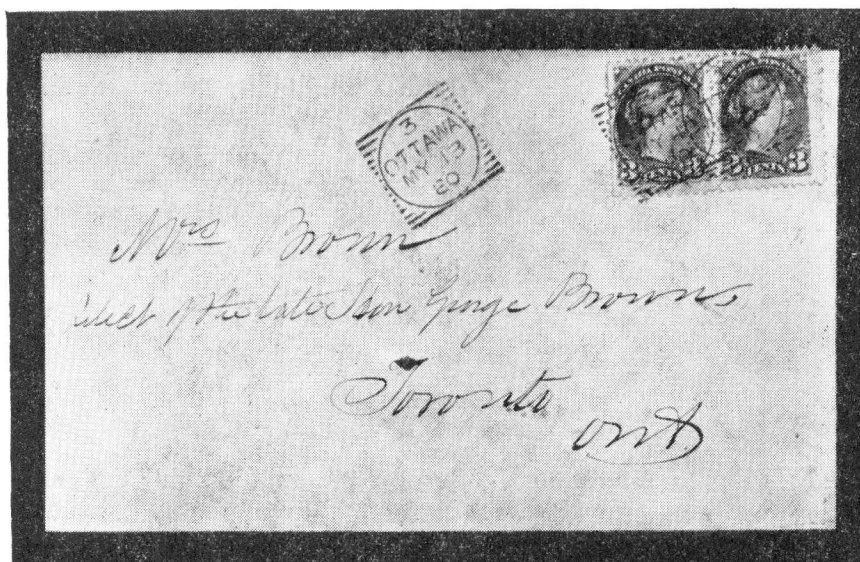 3
OTTAWA
MY 13
80
3 CENTS 3
3 CENTS 3
Mrs Brown
relict of the late Hon George Brown
Toronto
Ont